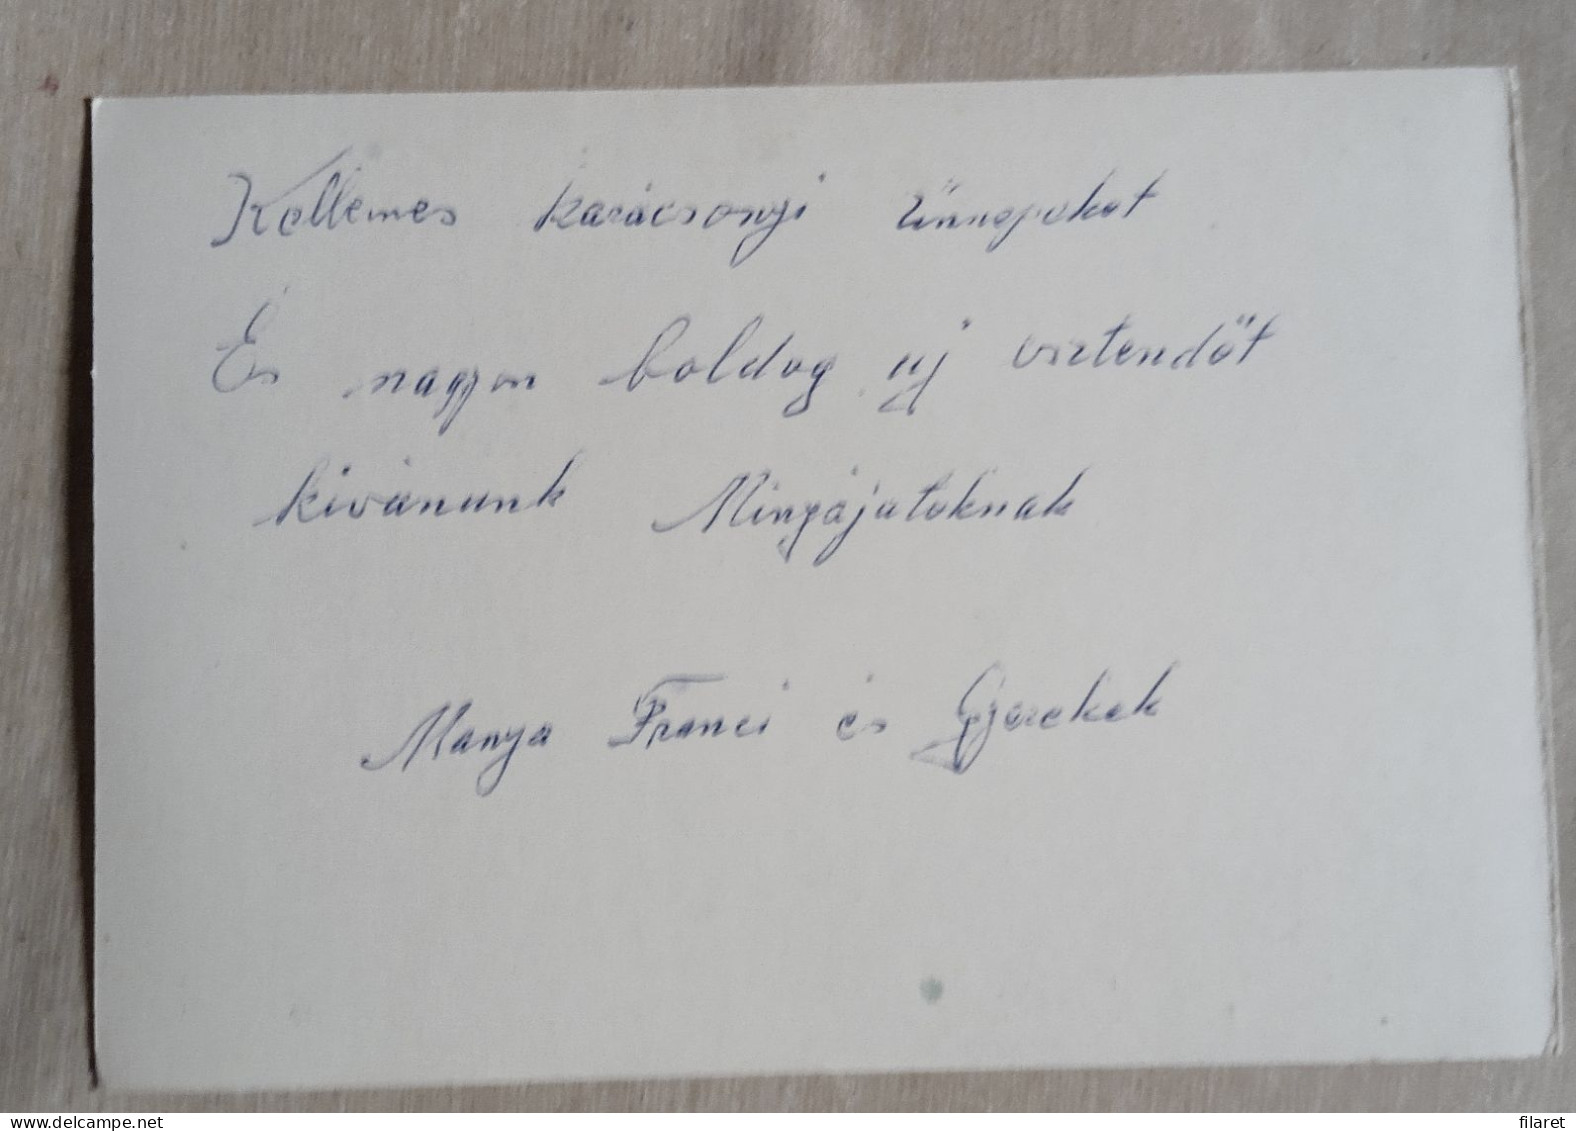 Kellemes karácsonyi ünnepeket
És nagyon boldog uj esztendőt
kivánunk Mingájatoknak
Manya Franci és Gyerekek
www.delcampe.net
filaret